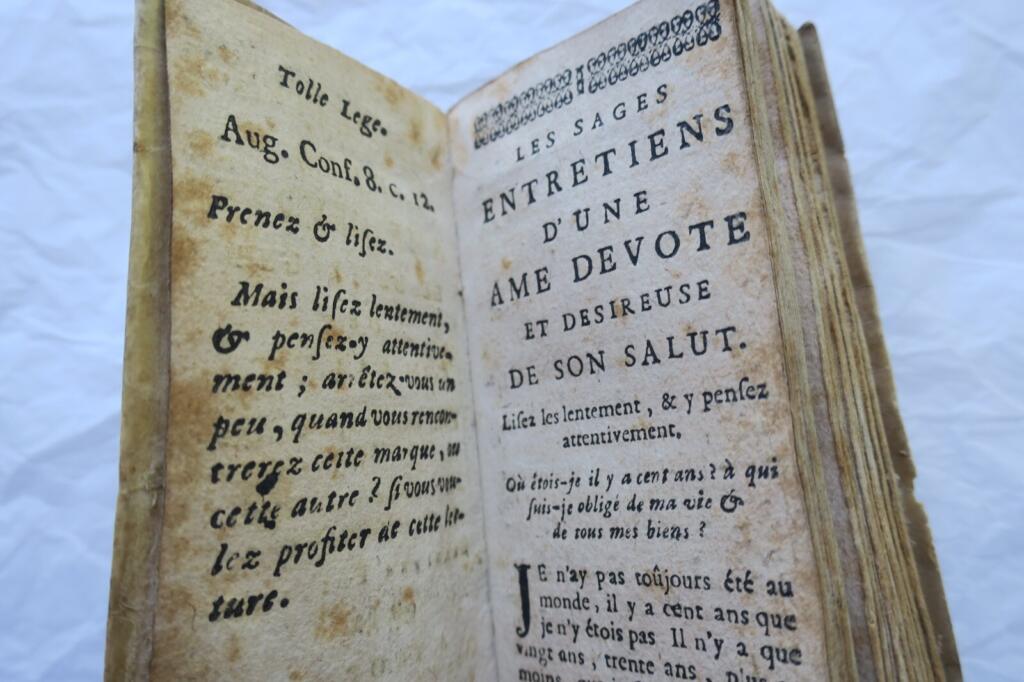 Tolle Lege.
Aug. Conf. 8. c. 12.
Prenez & liſez.
Mais liſez lentement,
& penſez-y attentive-
ment ; arrêtez-vous un
peu, quand vous rencon-
trerez cette marque, ou
cette autre ? ſi vous vou-
lez profiter de cette lec-
ture.
LES SAGES
ENTRETIENS
D'UNE
AME DEVOTE
ET DESIREUSE
DE SON SALUT.
Liſez les lentement, & y penſez
attentivement.
Où étois-je il y a cent ans ? à qui
ſuis-je obligé de ma vie &
de tous mes biens ?
JE n'ay pas toûjours été au
monde, il y a cent ans que
je n'y étois pas. Il n'y a que
vingt ans, trente ans,
moins,